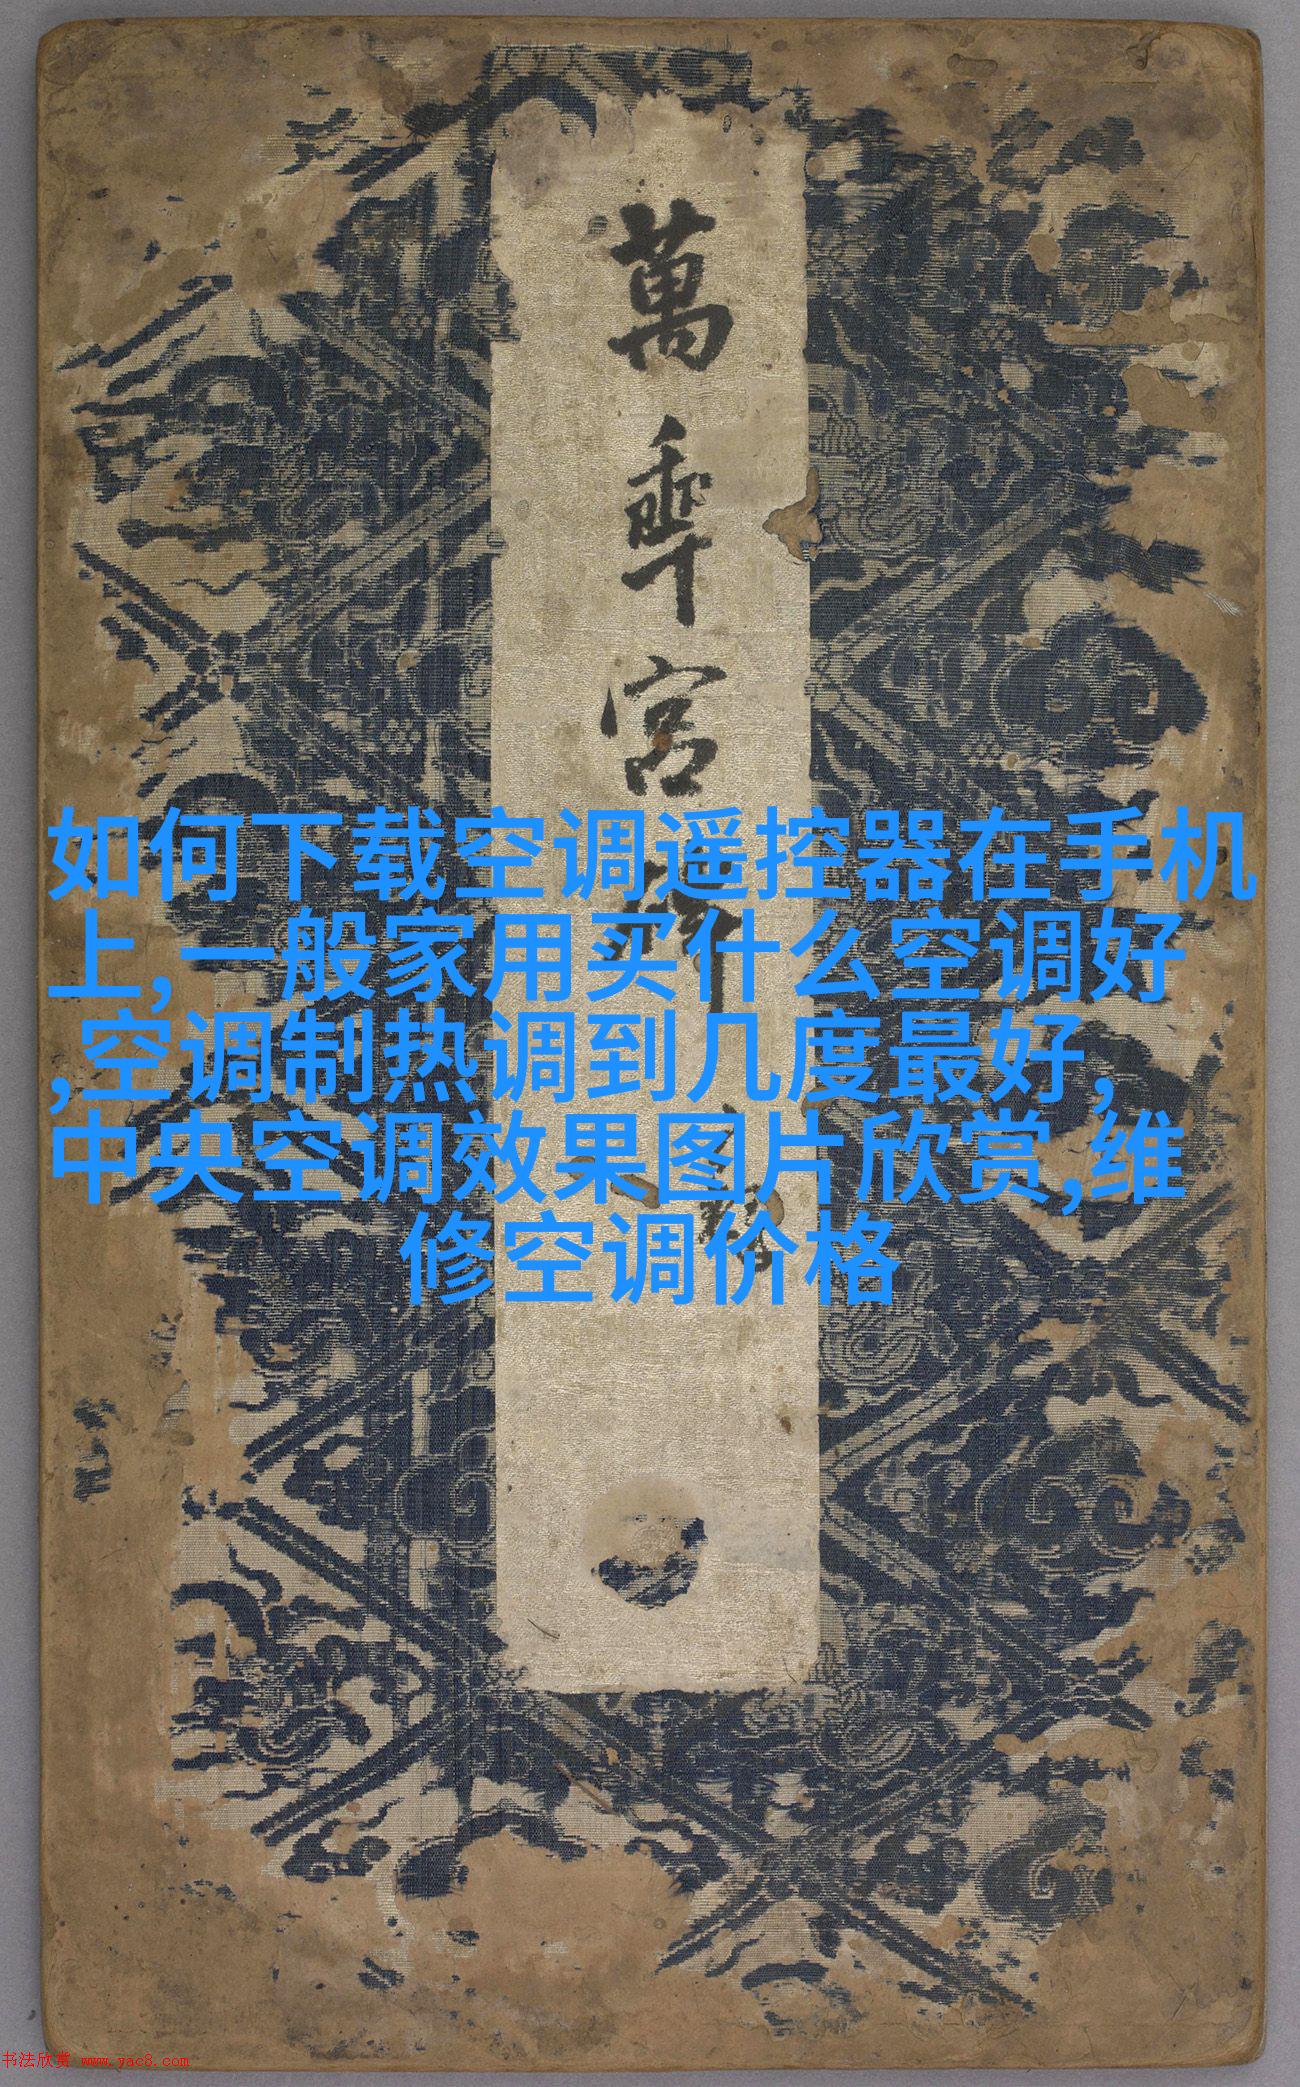 萬年宮碑
如何下载空调遥控器在手机
上,一般家用买什么空调好
,空调制热调到几度最好,
中央空调效果图片欣赏,维
修空调价格
书法欣赏 www.yac8.com